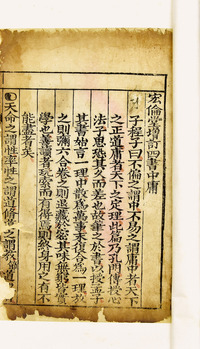 宏倫堂增訂四書中庸
子程子曰不偏之謂中不易之謂庸中者天下
之正道庸者天下之定理此篇乃孔門傳授心
法子思恐其久而差也故筆之於書以授孟子
其書始言一理中散為萬事末復合為一理放
之則彌六合卷之則退藏於密其味無窮皆實
學也善讀者玩索而有得焉則終身用之有不
能盡者矣
天命之謂性率性之謂道修道之謂教